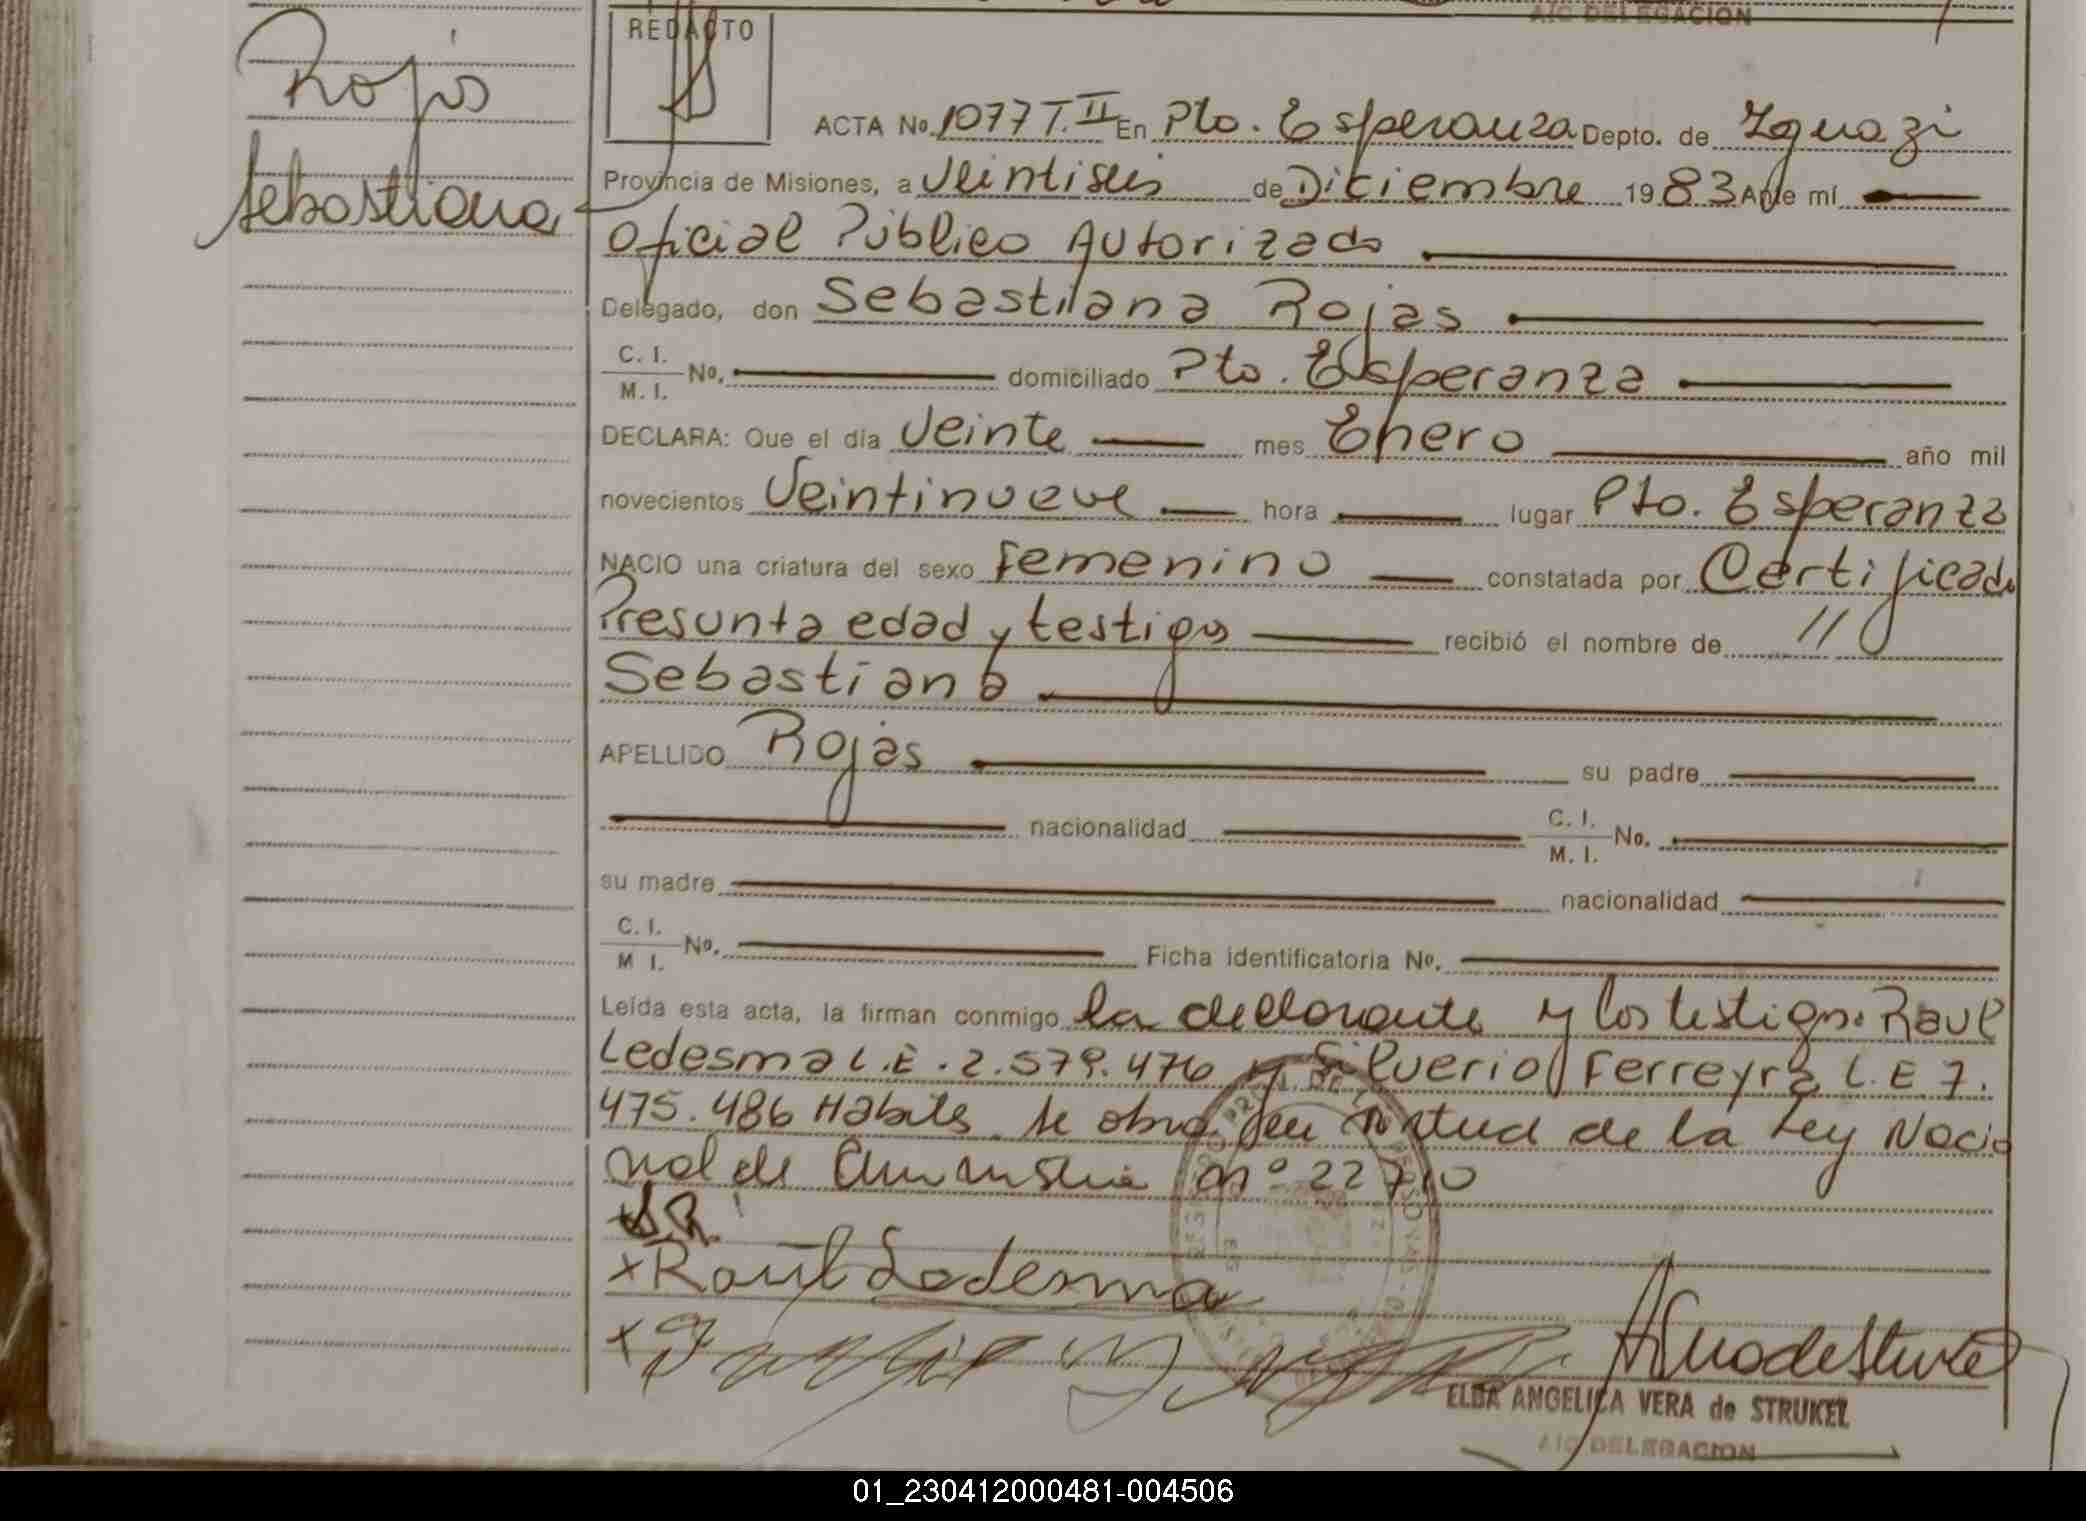 A/C DELEGACION
Rojas
Sebastiana
REDACTO
ACTA No. 1077 T. II En Pto. Esperanza Depto. de Iguazú
Provincia de Misiones, a Veintiseis de Diciembre 1983 Ante mí
Oficial Público Autorizado
Delegado, don Sebastiana Rojas
C. I.
M. I. No. domiciliado Pto. Esperanza
DECLARA: Que el día Veinte mes Enero año mil
novecientos Veintinueve hora lugar Pto. Esperanza
NACIO una criatura del sexo femenino constatada por Certificado
Presunta edad y testigos recibió el nombre de //
Sebastiana
APELLIDO Rojas su padre
nacionalidad C. I.
M. I. No.
su madre nacionalidad
C. I.
M I. No. Ficha identificatoria No.
Leída esta acta, la firman conmigo la declarante y los testigos Raul
Ledesma L.E. 2.579.476 y Silverio Ferreyra L.E 7.
475.486 Habiles. Se obra en virtud de la Ley Nacio
nal de Amnistia nº 22710
S.R.
x Raúl Ledesma
x
ELBA ANGELICA VERA de STRUKEL
A/C DELEGACION
01_230412000481-004506